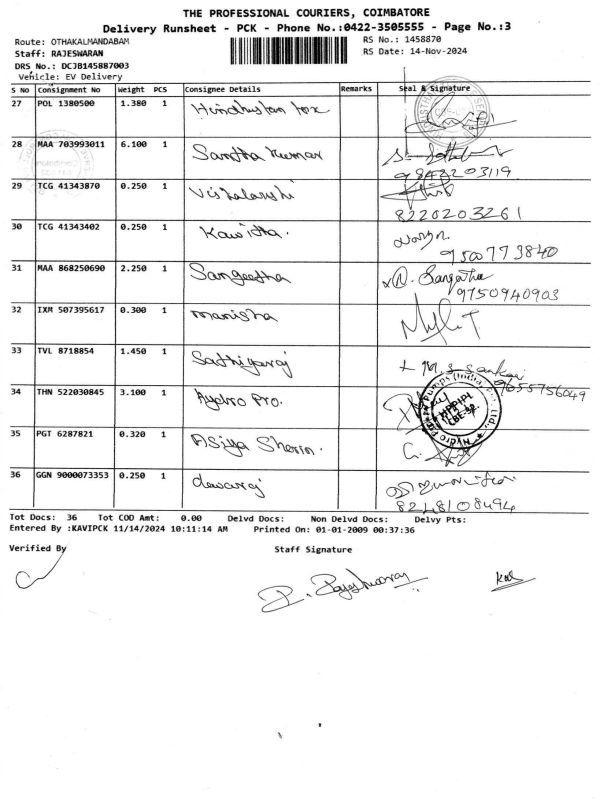 THE PROFESSIONAL COURIERS, COIMBATORE
Delivery Runsheet - PCK - Phone No.:0422-3505555 - Page No.:3
Route: OTHAKALMANDABAM
RS No.: 1458870
Staff: RAJESWARAN
RS Date: 14-Nov-2024
DRS No.: DCJB145887003
Vehicle: EV Delivery
S No Consignment No Weight PCS Consignee Details Remarks Seal & Signature
27 POL 1380500 1.380 1 Hindhustan
28 MAA 703993011 6.100 1 Santha Kumar
9843203119
29 TCG 41343870 0.250 1
8220203261
30 TCG 41343402 0.250 1 Kavitha.
9500773840
31 MAA 868250690 2.250 1 Sangeetha
9750940903
32 IXM 507395617 0.300 1 manisha
33 TVL 8718854 1.450 1 Sathiyaraj
9655756049
34 THN 522030845 3.100 1 Hydro Pro.
35 PGT 6287821 0.320 1 Asiya Sherin.
36 GGN 9000073353 0.250 1 devaraj
8248108494
Tot Docs: 36 Tot COD Amt: 0.00 Delvd Docs: Non Delvd Docs: Delvy Pts:
Entered By :KAVIPCK 11/14/2024 10:11:14 AM Printed On: 01-01-2009 00:37:36
Verified By Staff Signature